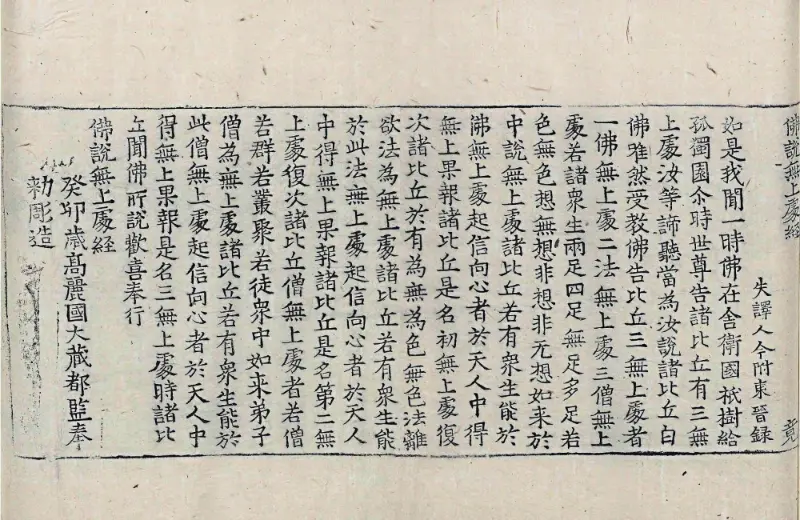 佛說無上處經　竟
失譯人今附東晉錄
如是我聞一時佛在舍衛國祇樹給
孤獨園尒時世尊告諸比丘有三無
上處汝等諦聽當為汝說諸比丘白
佛唯然受教佛告比丘三無上處者
一佛無上處二法無上處三僧無上
處若諸衆生兩足四足無足多足若
色無色想無想非想非无想如来於
中說無上處諸比丘若有衆生能於
佛無上處起信向心者於天人中得
無上果報諸比丘是名初無上處復
次諸比丘於有為無為色無色法離
欲法為無上處諸比丘若有衆生能
於此法無上處起信向心者於天人
中得無上果報諸比丘是名第二無
上處復次諸比丘僧無上處者若僧
若群若叢聚若徒衆中如来弟子
僧為無上處諸比丘若有衆生能於
此僧無上處起信向心者於天人中
得無上果報是名三無上處時諸比
丘聞佛所說歡喜奉行
佛說無上處經
癸卯歲高麗國大藏都監奉
勑彫造